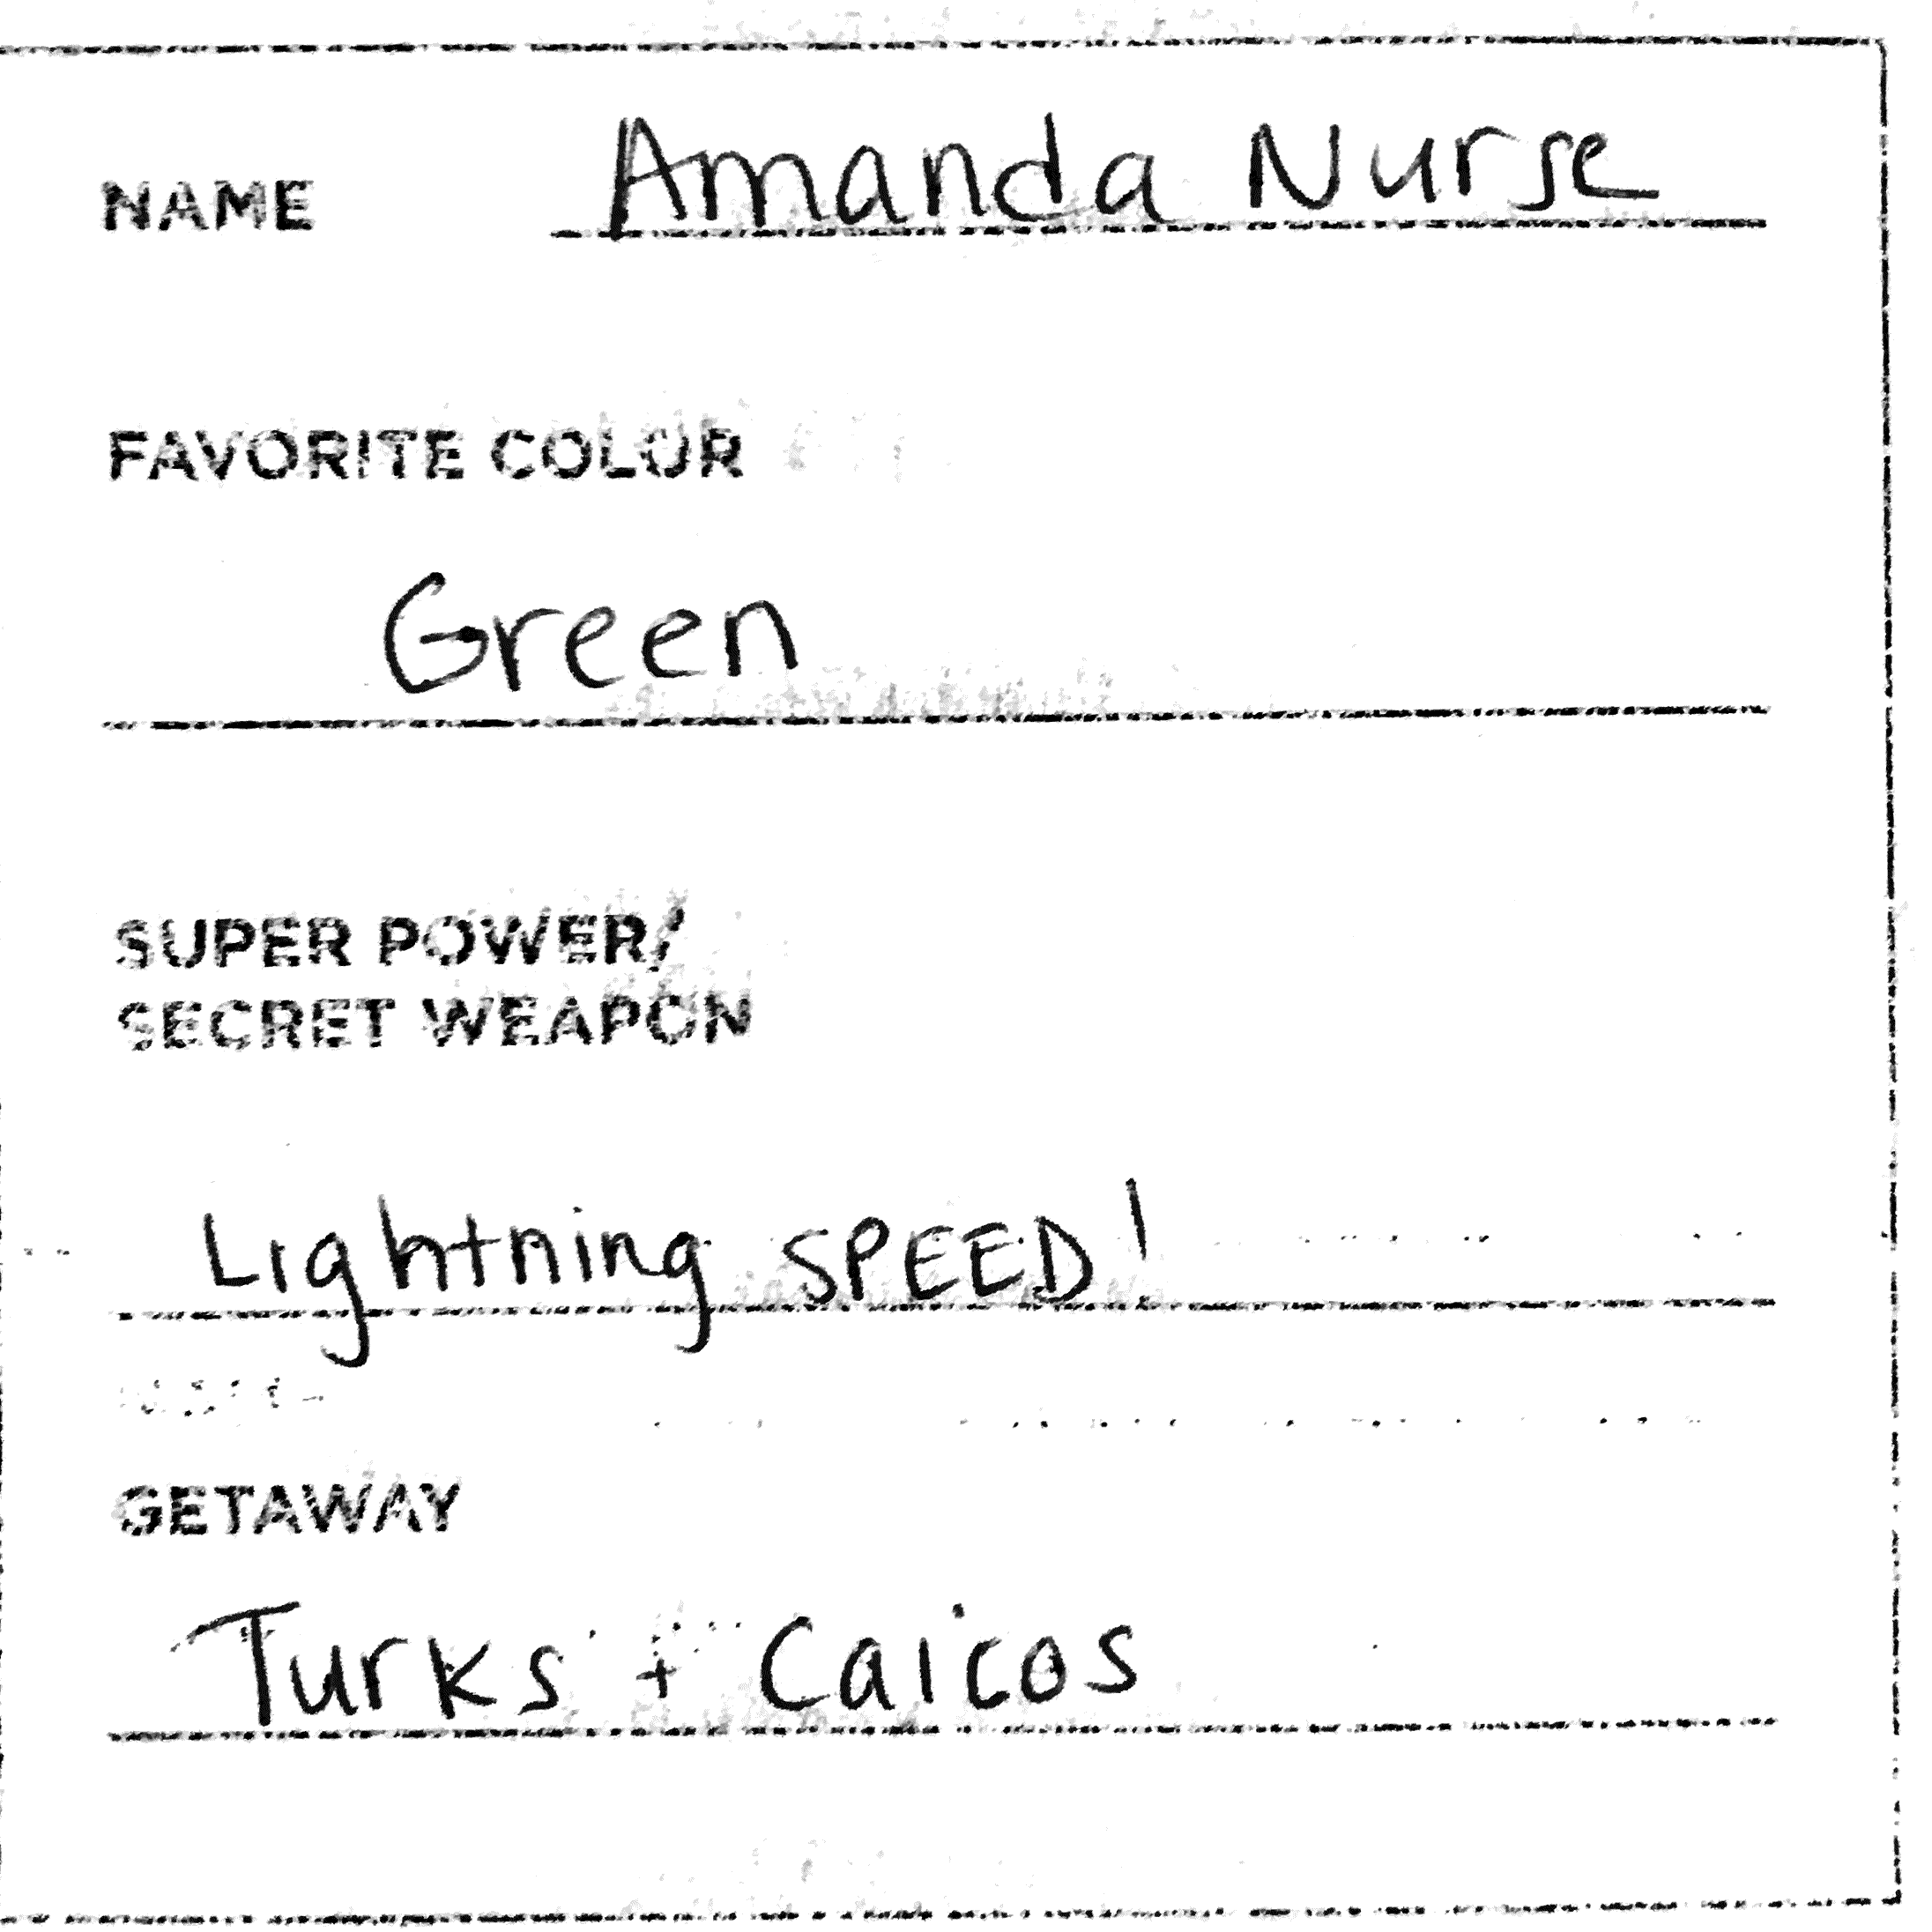 NAME Amanda Nurse
FAVORITE COLOR
Green
SUPER POWER/
SECRET WEAPON
Lightning SPEED!
GETAWAY
Turks + Caicos